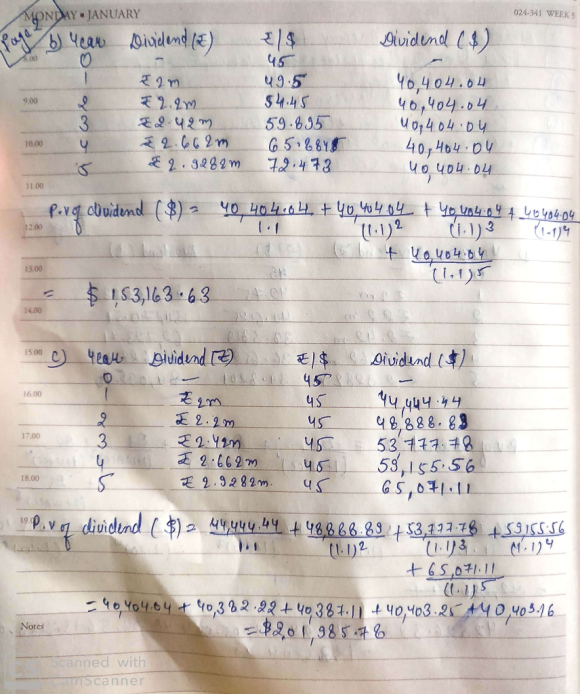 MONDAY • JANUARY 024-341 WEEK 5
Page 2
b) Year Dividend (₹) ₹/$ Dividend ($)
8.00 0 — 45 —
1 ₹2m 49.5 40,404.04
9.00 2 ₹2.2m 54.45 40,404.04
3 ₹2.42m 59.895 40,404.04
10.00 4 ₹2.662m 65.8845 40,404.04
5 ₹2.9282m 72.473 40,404.04
11.00
P.v of dividend ($) = 40,404.04/1.1 + 40,404.04/(1.1)2 + 40,404.04/(1.1)3 + 40,404.04/(1.1)4
12.00
+ 40,404.04/(1.1)5
13.00
= $ 1,53,163.63
14.00
15.00 c) Year Dividend (₹) ₹/$ Dividend ($)
0 — 45 —
16.00 1 ₹2m 45 44,444.44
2 ₹2.2m 45 48,888.89
17.00 3 ₹2.42m 45 53,777.78
4 ₹2.662m 45 59,155.56
18.00 5 ₹2.9282m. 45 65,071.11
19.00 P.v of dividend ($) = 44,444.44/1.1 + 48,888.89/(1.1)2 + 53,777.78/(1.1)3 + 59,155.56/(1.1)4
+ 65,071.11/(1.1)5
= 40,404.04 + 40,382.22 + 40,387.11 + 40,403.25 + 40,403.16
Notes = $201,985.78
Scanned with
CamScanner